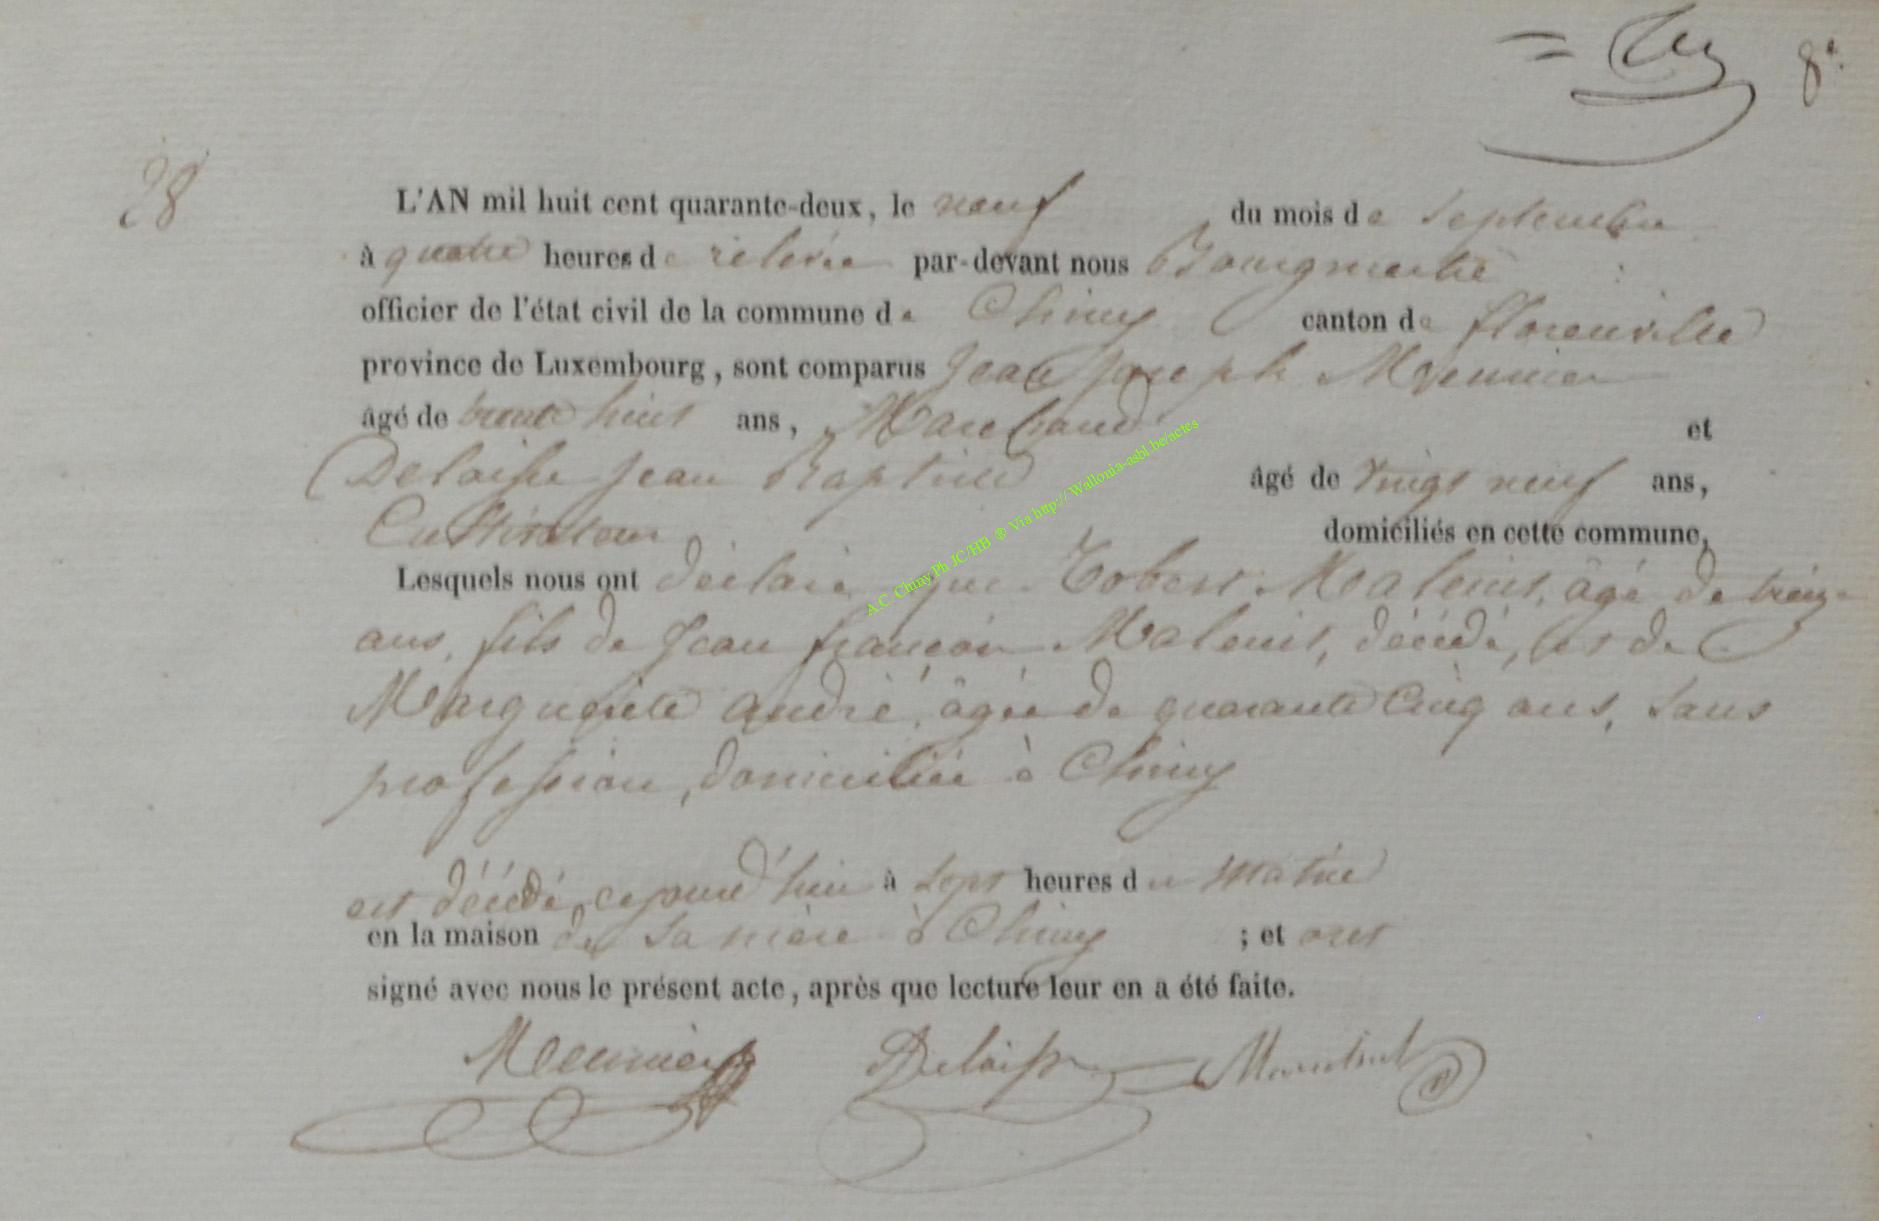 8e
28
L'AN mil huit cent quarante-deux, le neuf du mois de Septembre
à quatre heures de relevée par-devant nous Bourgmestre
officier de l'état civil de la commune de Chiny canton de florenville
province de Luxembourg, sont comparus Jean Joseph Meunier
âgé de trente huit ans, Marchand et
Delaisse Jean Baptiste âgé de Vingt neuf ans,
Cultivateur domiciliés en cette commune,
Lesquels nous ont déclaré que Robert Maleuit, âgé de treize
ans, fils de Jean françois Maleuit, décédé, et de
Marguerite andré, âgée de quarante Cinq ans, Sans
profession, domiciliée à Chiny
est décédé, cejourd'hui à Sept heures du matin
en la maison de Sa mère à Chiny ; et ont
signé avec nous le présent acte, après que lecture leur en a été faite.
Meunier Delaisse
A.C. Chiny Ph JC/HB ® Via http:// Wallonia-asbl.be/actes